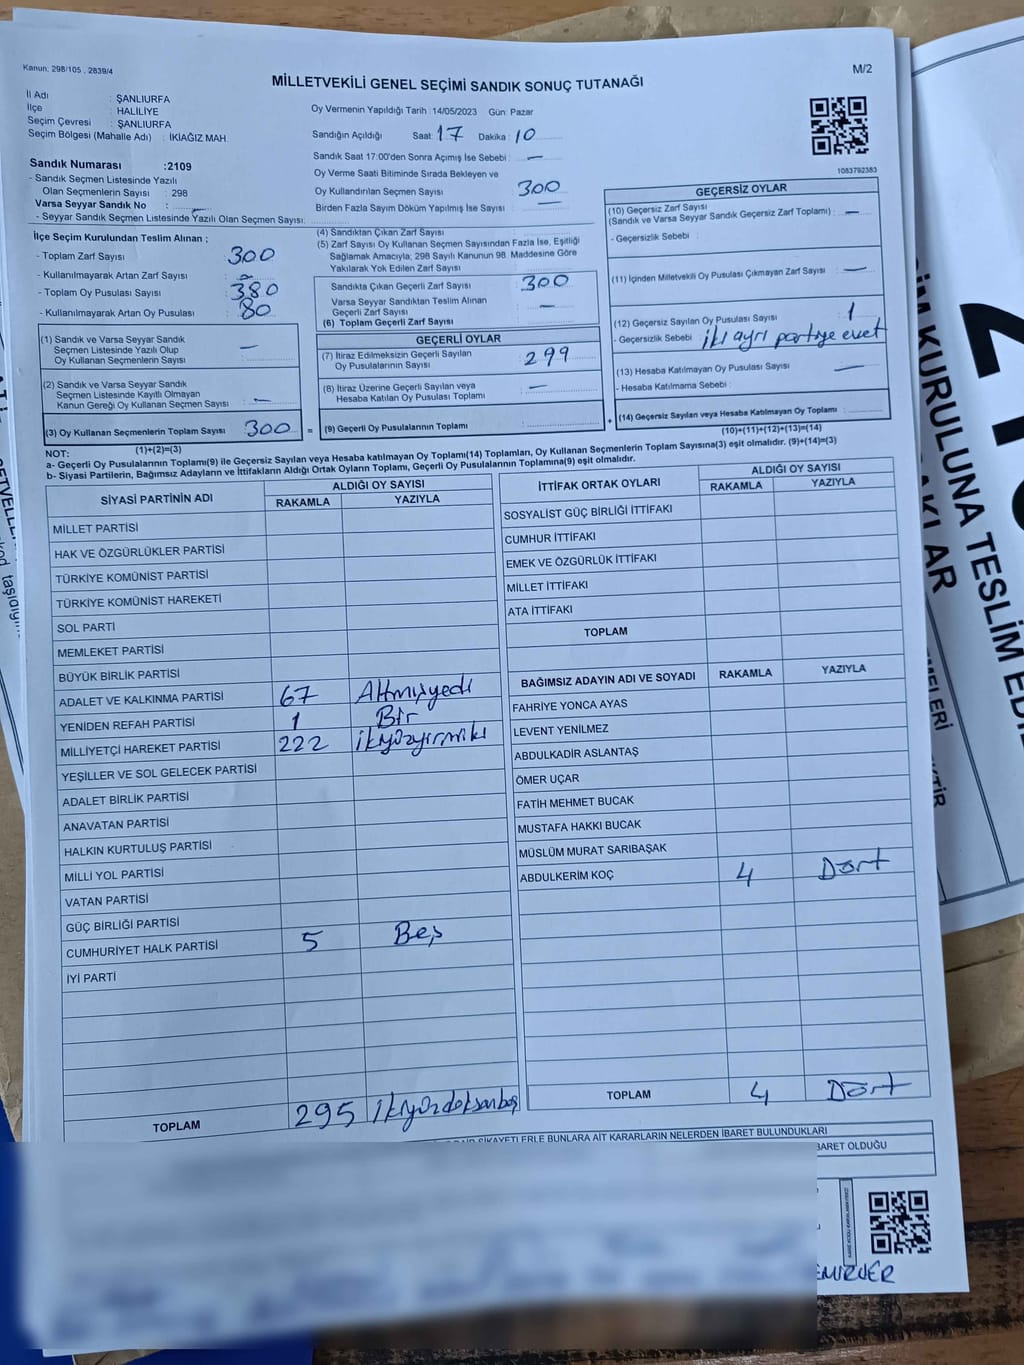 Kanun. 298/105 , 2839/4
M/2
MİLLETVEKİLİ GENEL SEÇİMİ SANDIK SONUÇ TUTANAĞI
İl Adı : ŞANLIURFA
İlçe : HALİLİYE
Seçim Çevresi : ŞANLIURFA
Seçim Bölgesi (Mahalle Adı) : İKİAĞIZ MAH.
Sandık Numarası :2109
- Sandık Seçmen Listesinde Yazılı
Olan Seçmenlerin Sayısı : 298
Varsa Seyyar Sandık No :
- Seyyar Sandık Seçmen Listesinde Yazılı Olan Seçmen Sayısı:
Oy Vermenin Yapıldığı Tarih :14/05/2023 Gün: Pazar
Sandığın Açıldığı Saat: 17 Dakika: 10
Sandık Saat 17:00'den Sonra Açımış İse Sebebi : —
Oy Verme Saati Bitiminde Sırada Bekleyen ve
Oy Kullandırılan Seçmen Sayısı 300
Birden Fazla Sayım Döküm Yapılmış İse Sayısı : —
1083792383
İlçe Seçim Kurulundan Teslim Alınan ;
- Toplam Zarf Sayısı : 300
- Kullanılmayarak Artan Zarf Sayısı :
- Toplam Oy Pusulası Sayısı : 380
- Kullanılmayarak Artan Oy Pusulası : 80
(1) Sandık ve Varsa Seyyar Sandık
Seçmen Listesinde Yazılı Olup
Oy Kullanan Seçmenlerin Sayısı : —
(2) Sandık ve Varsa Seyyar Sandık
Seçmen Listesinde Kayıtlı Olmayan
Kanun Gereği Oy Kullanan Seçmen Sayısı : —
(3) Oy Kullanan Seçmenlerin Toplam Sayısı 300 =
(4) Sandıktan Çıkan Zarf Sayısı :
(5) Zarf Sayısı Oy Kullanan Seçmen Sayısından Fazla İse, Eşitliği
Sağlamak Amacıyla; 298 Sayılı Kanunun 98. Maddesine Göre
Yakılarak Yok Edilen Zarf Sayısı :
Sandıkta Çıkan Geçerli Zarf Sayısı : 300
Varsa Seyyar Sandıktan Teslim Alınan
Geçerli Zarf Sayısı : —
(6) Toplam Geçerli Zarf Sayısı :
GEÇERLİ OYLAR
(7) İtiraz Edilmeksizin Geçerli Sayılan
Oy Pusulalarının Sayısı : 299
(8) İtiraz Üzerine Geçerli Sayılan veya
Hesaba Katılan Oy Pusulası Toplamı : —
(9) Geçerli Oy Pusulalarının Toplamı : +
GEÇERSİZ OYLAR
(10) Geçersiz Zarf Sayısı
(Sandık ve Varsa Seyyar Sandık Geçersiz Zarf Toplamı) : —
- Geçersizlik Sebebi :
(11) İçinden Milletvekili Oy Pusulası Çıkmayan Zarf Sayısı : —
(12) Geçersiz Sayılan Oy Pusulası Sayısı : 1
- Geçersizlik Sebebi : iki ayrı partiye evet
(13) Hesaba Katılmayan Oy Pusulası Sayısı : —
- Hesaba Katılmama Sebebi :
(14) Geçersiz Sayılan veya Hesaba Katılmayan Oy Toplamı :
(10)+(11)+(12)+(13)=(14)
NOT: (1)+(2)=(3)
a- Geçerli Oy Pusulalarının Toplamı(9) ile Geçersiz Sayılan veya Hesaba katılmayan Oy Toplamı(14) Toplamları, Oy Kullanan Seçmenlerin Toplam Sayısına(3) eşit olmalıdır. (9)+(14)=(3)
b- Siyasi Partilerin, Bağımsız Adayların ve İttifakların Aldığı Ortak Oyların Toplamı, Geçerli Oy Pusulalarının Toplamına(9) eşit olmalıdır.
SİYASİ PARTİNİN ADI
ALDIĞI OY SAYISI
RAKAMLA YAZIYLA
MİLLET PARTİSİ
HAK VE ÖZGÜRLÜKLER PARTİSİ
TÜRKİYE KOMÜNİST PARTİSİ
TÜRKİYE KOMÜNİST HAREKETİ
SOL PARTİ
MEMLEKET PARTİSİ
BÜYÜK BİRLİK PARTİSİ
ADALET VE KALKINMA PARTİSİ 67 Altmışyedi
YENİDEN REFAH PARTİSİ 1 Bir
MİLLİYETÇİ HAREKET PARTİSİ 222 ikiyüzyirmiiki
YEŞİLLER VE SOL GELECEK PARTİSİ
ADALET BİRLİK PARTİSİ
ANAVATAN PARTİSİ
HALKIN KURTULUŞ PARTİSİ
MİLLİ YOL PARTİSİ
VATAN PARTİSİ
GÜÇ BİRLİĞİ PARTİSİ
CUMHURİYET HALK PARTİSİ 5 Beş
İYİ PARTİ
TOPLAM 295 ikiyüzdoksanbeş
İTTİFAK ORTAK OYLARI
ALDIĞI OY SAYISI
RAKAMLA YAZIYLA
SOSYALİST GÜÇ BİRLİĞİ İTTİFAKI
CUMHUR İTTİFAKI
EMEK VE ÖZGÜRLÜK İTTİFAKI
MİLLET İTTİFAKI
ATA İTTİFAKI
TOPLAM
BAĞIMSIZ ADAYIN ADI VE SOYADI RAKAMLA YAZIYLA
FAHRİYE YONCA AYAS
LEVENT YENİLMEZ
ABDULKADİR ASLANTAŞ
ÖMER UÇAR
FATİH MEHMET BUCAK
MUSTAFA HAKKI BUCAK
MÜSLÜM MURAT SARIBAŞAK
ABDULKERİM KOÇ 4 Dört
TOPLAM 4 Dört
ŞİKAYETLERLE BUNLARA AİT KARARLARIN NELERDEN İBARET BULUNDUKLARI
BARET OLDUĞU
İM KURULUNA TESLİM EDİL
AKLAR